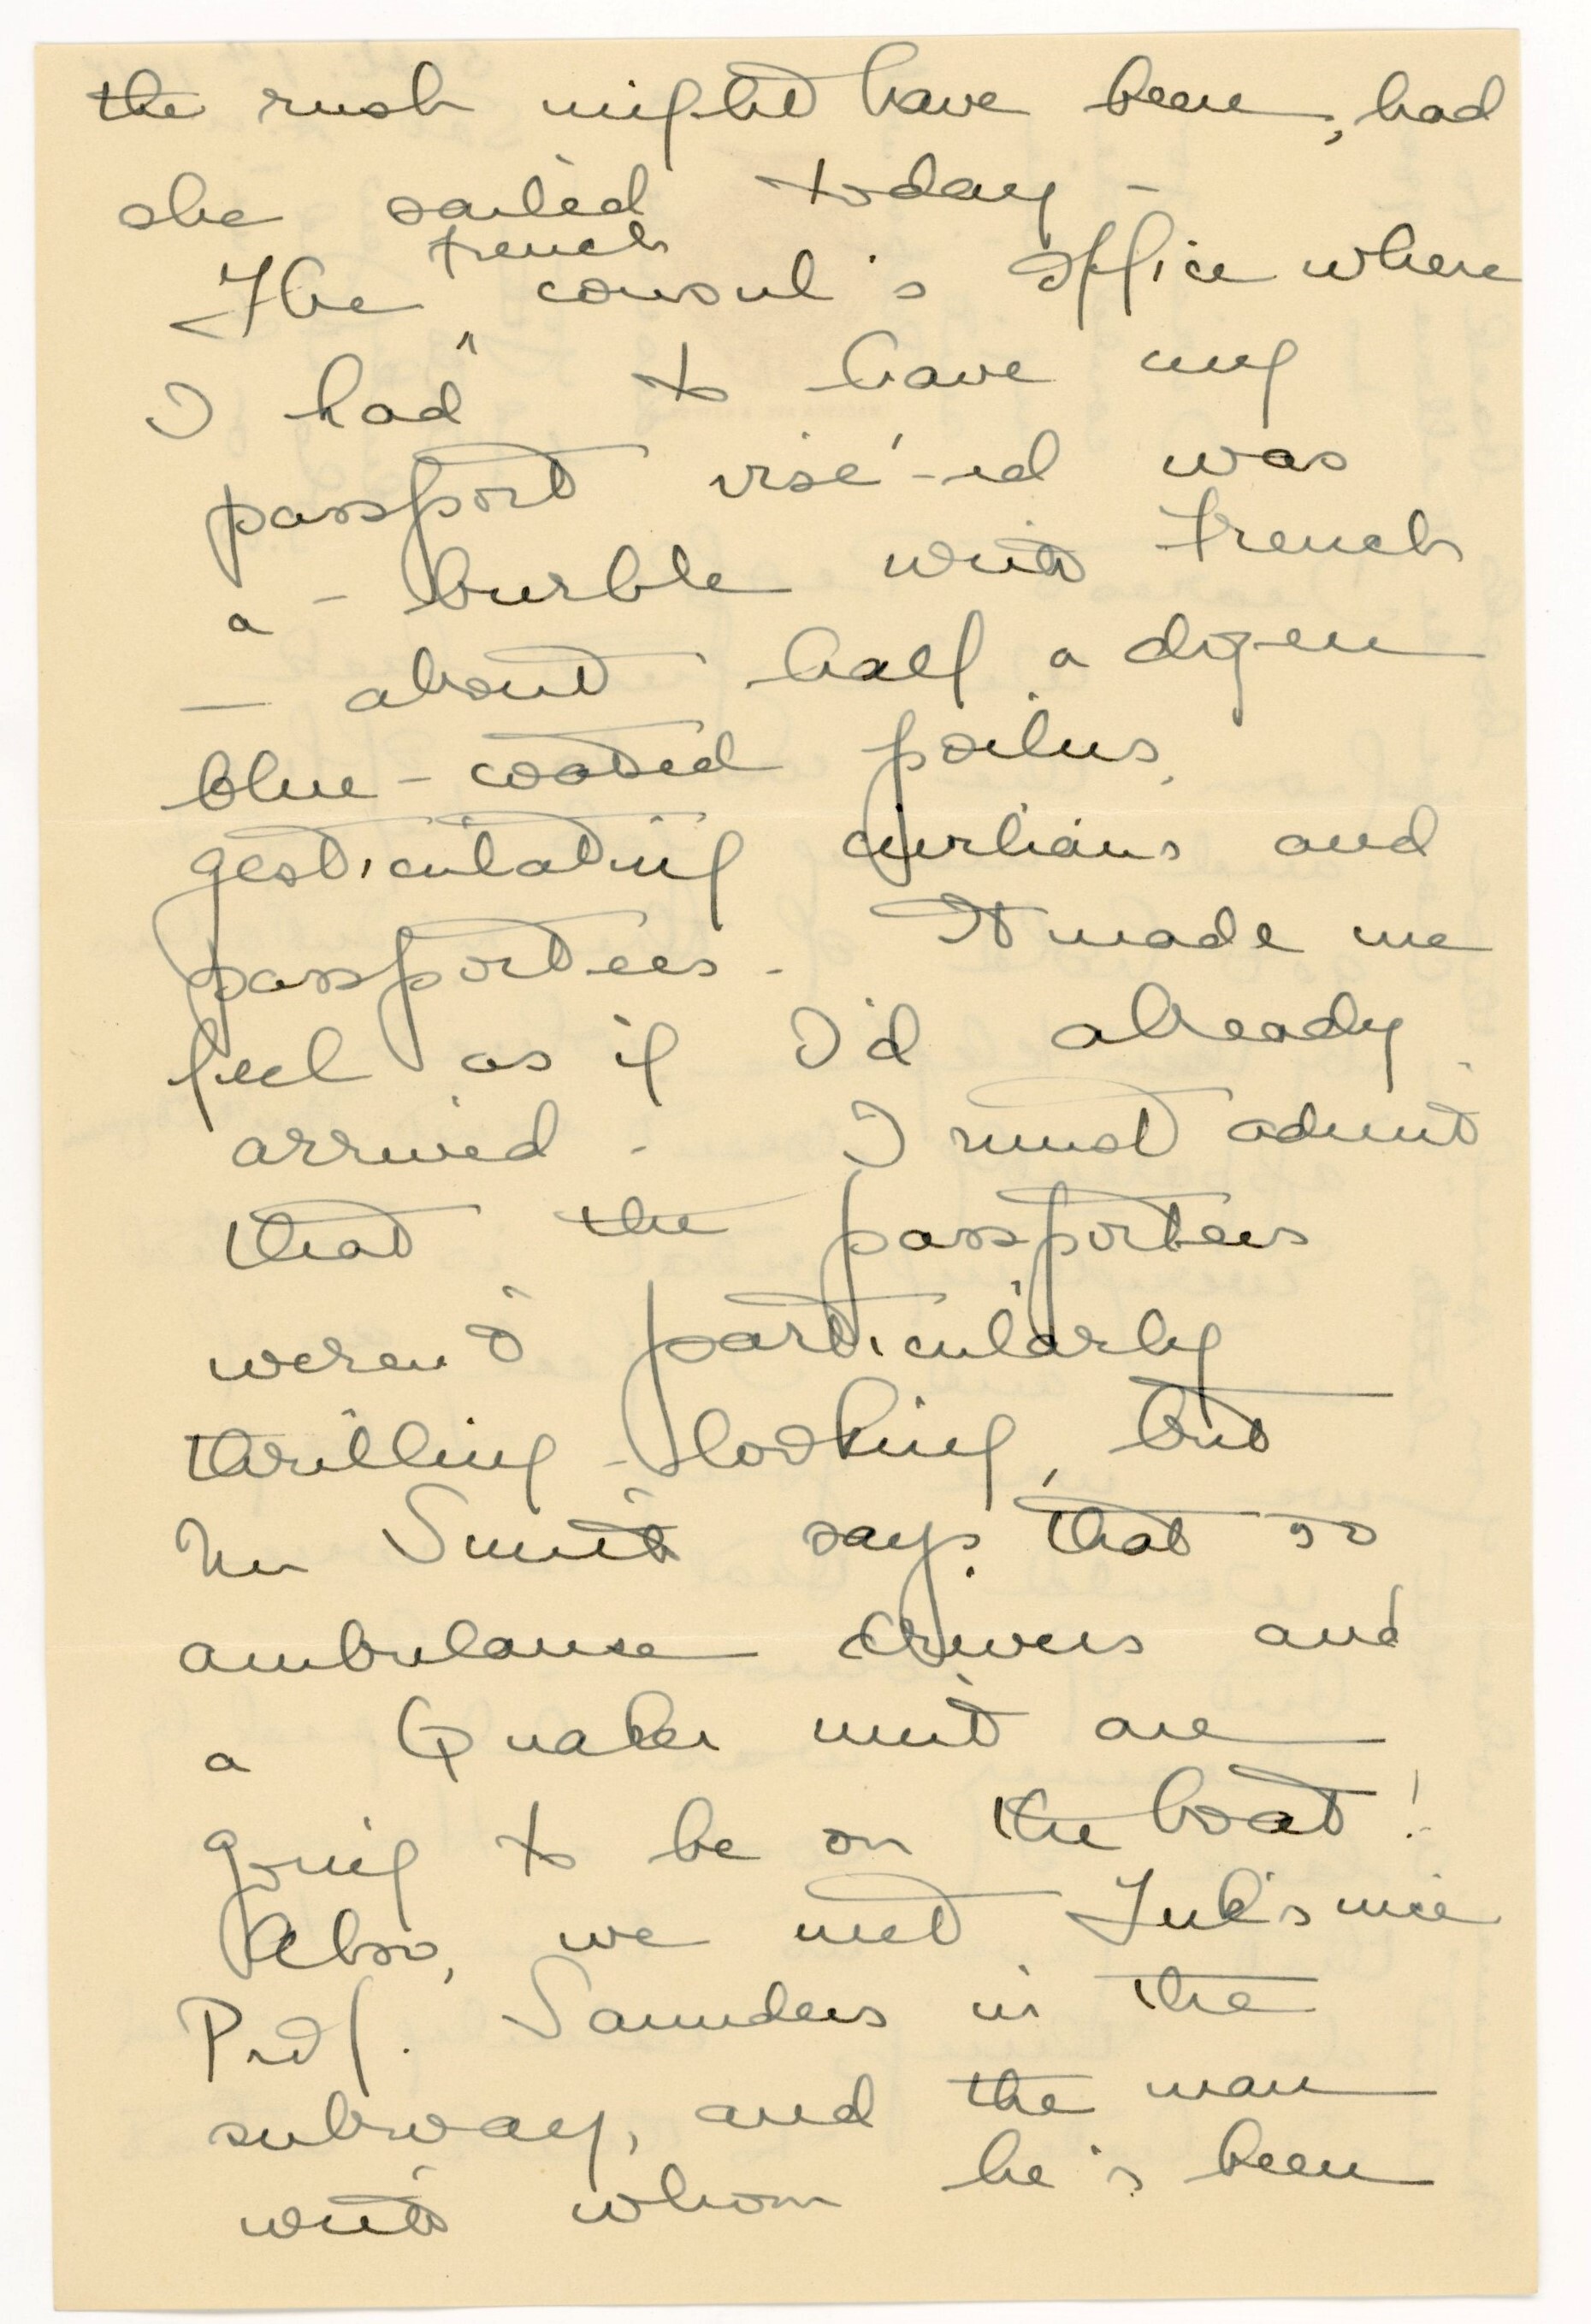 the rush might have been, had
she sailed today -
The ^french consul's office where
I had to have my
passport visé-ed was
a - burble with French
— about half a dozen
blue-coated poilus,
gesticulating civilians and
passportees. It made me
feel as if I'd already
arrived. I must admit
that the passportees
weren't particularly
thrilling-looking, but
Mr Smith says that 50
ambulance drivers and
a Quaker unit are
going to be on the boat!
Also, we met
Prof. Saunders in the
subway, and the man
with whom he's been